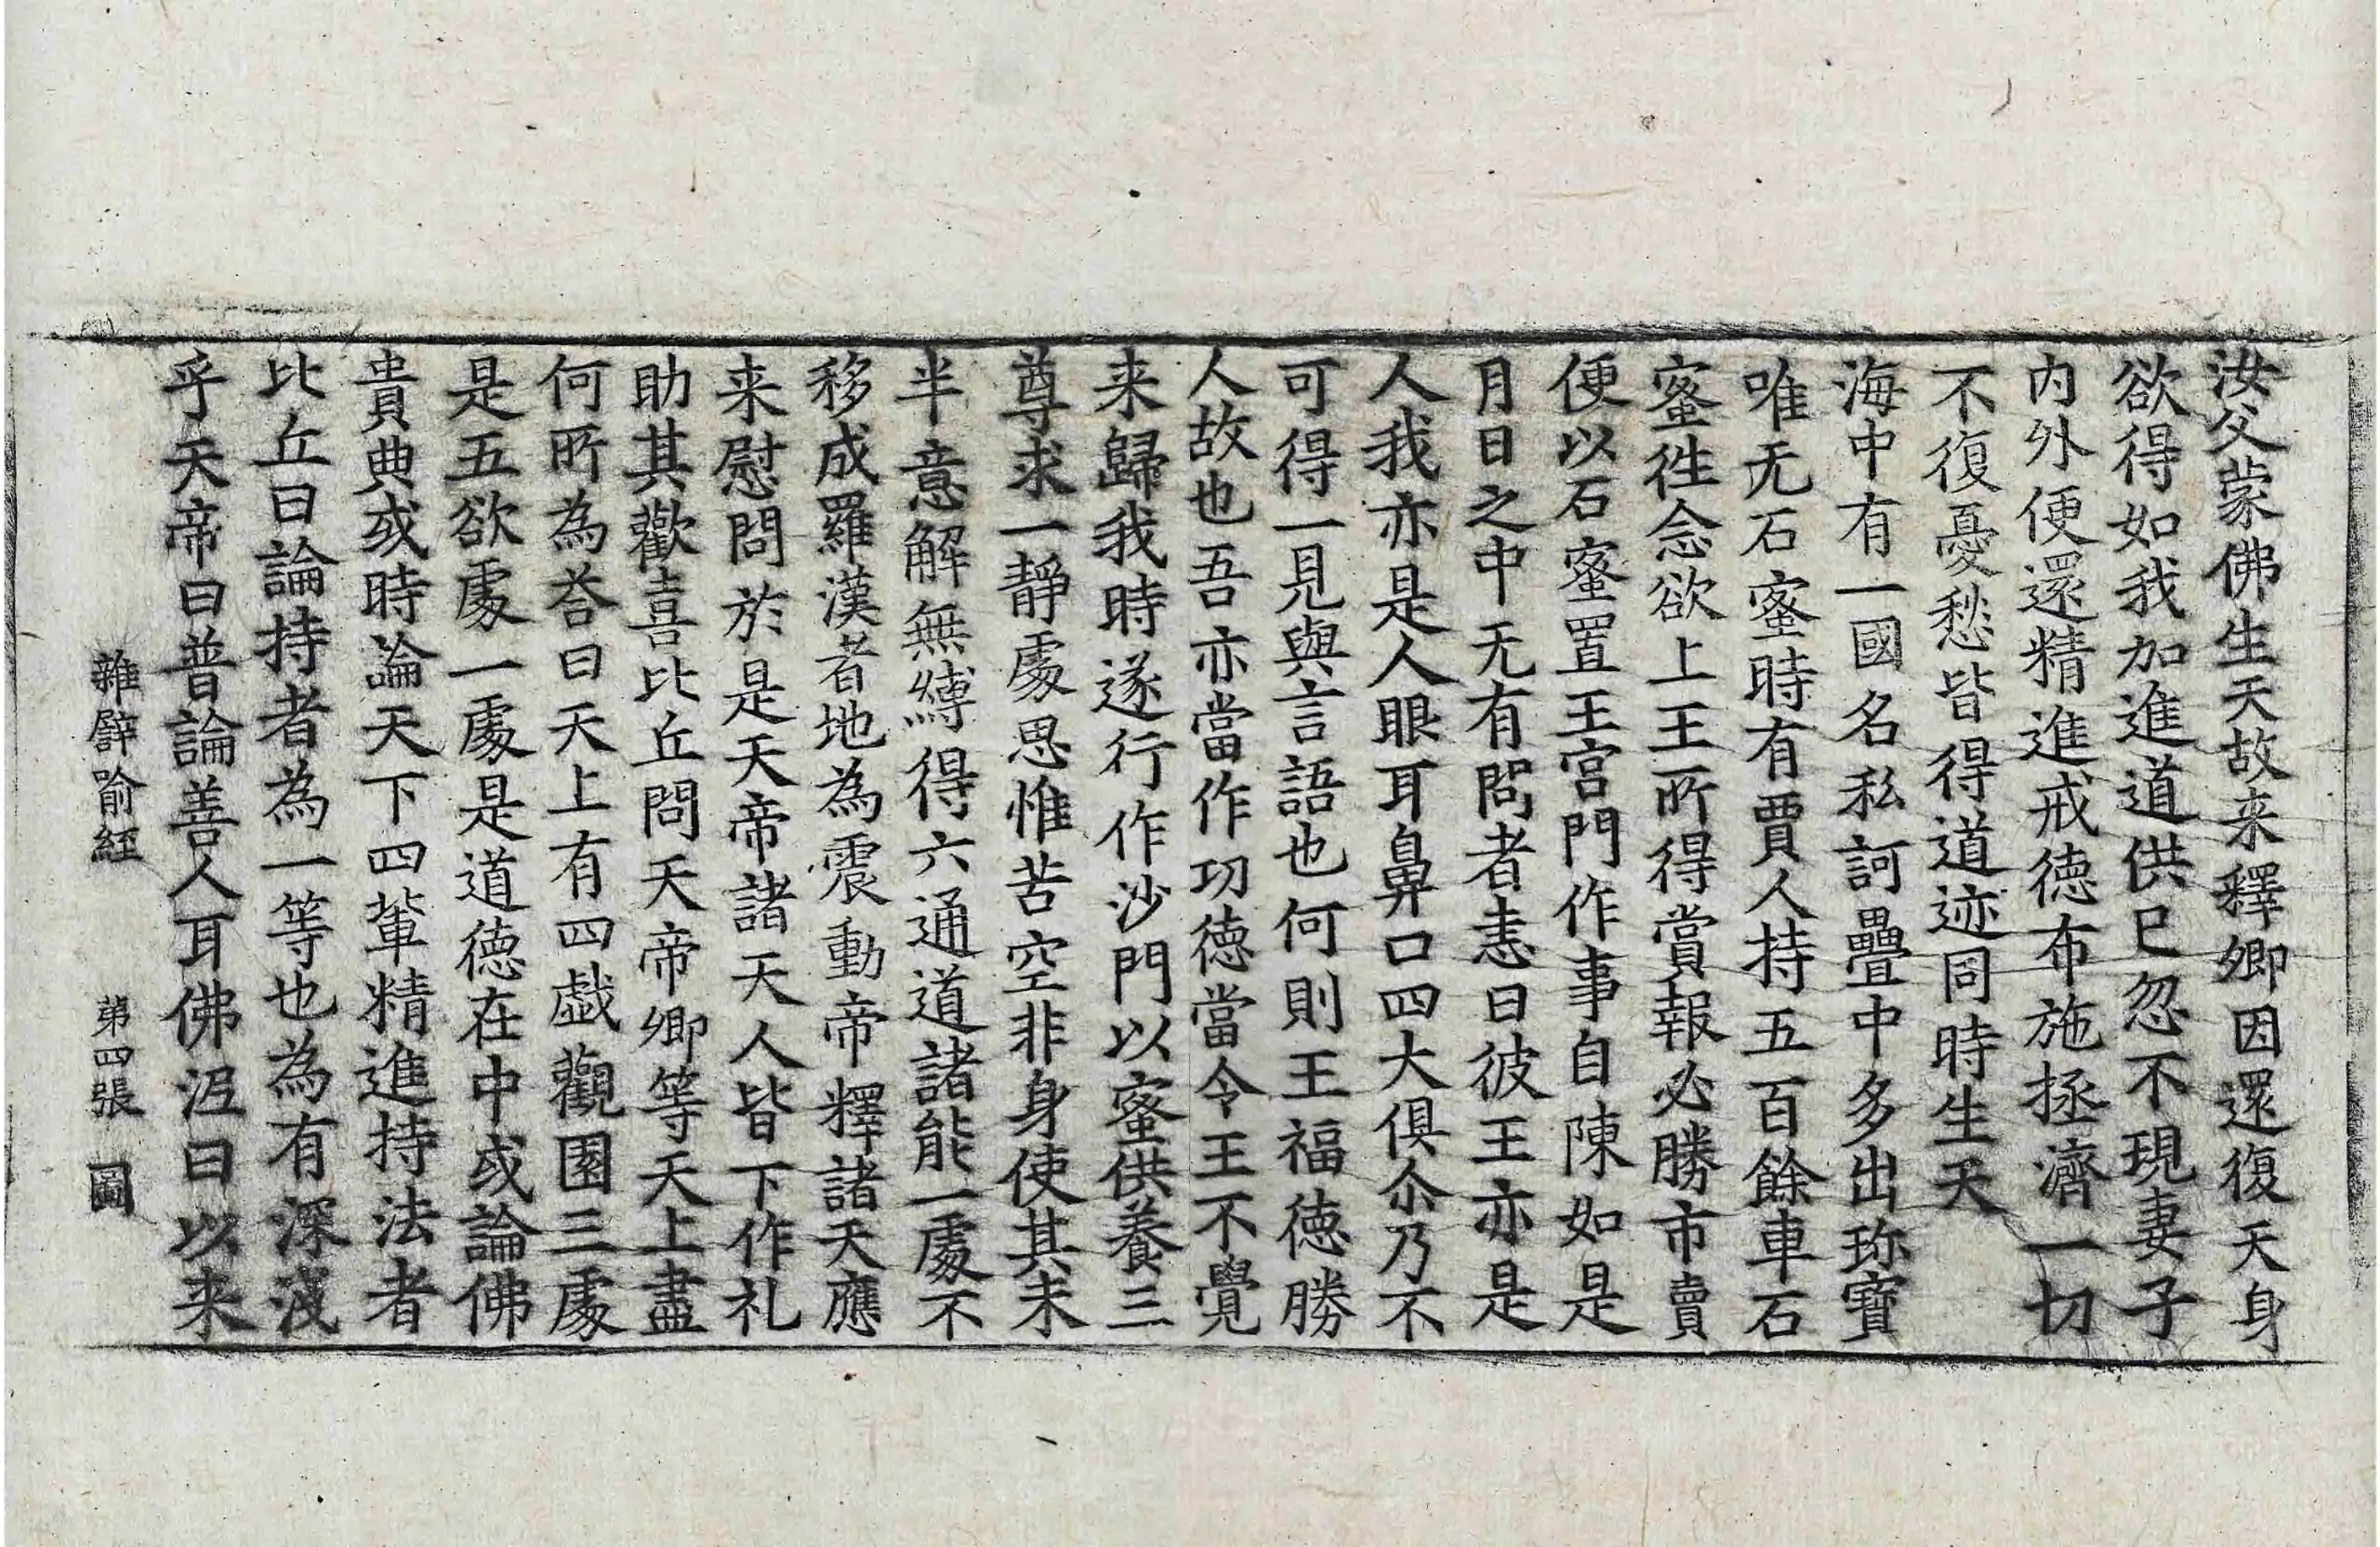 汝父蒙佛生天故来釋卿因還復天身
欲得如我加進道供已忽不現妻子
内外便還精進戒徳布施拯濟一切
不復憂愁皆得道迹同時生天
海中有一國名私訶疊中多出珎寶
唯无石蜜時有賈人持五百餘車石
蜜徃念欲上王所得賞報必勝市賣
便以石蜜置王宫門作事自陳如是
月日之中无有問者恚曰彼王亦是
人我亦是人眼耳鼻口四大俱尒乃不
可得一見與言語也何則王福徳勝
人故也吾亦當作功徳當令王不覺
来歸我時遂行作沙門以蜜供養三
尊求一静處思惟苦空非身使其未
半意解無縛得六通道諸能一處不
移成羅漢者地為震動帝釋諸天應
来慰問於是天帝諸天人皆下作礼
助其歡喜比丘問天帝卿等天上盡
何所為荅曰天上有四戯觀園三處
是五欲處一處是道徳在中或論佛
貴典或時論天下四輩精進持法者
比丘曰論持者為一等也為有深淺
乎天帝曰普論善人耳佛泥曰以来
雜譬喻經 第四張 圖